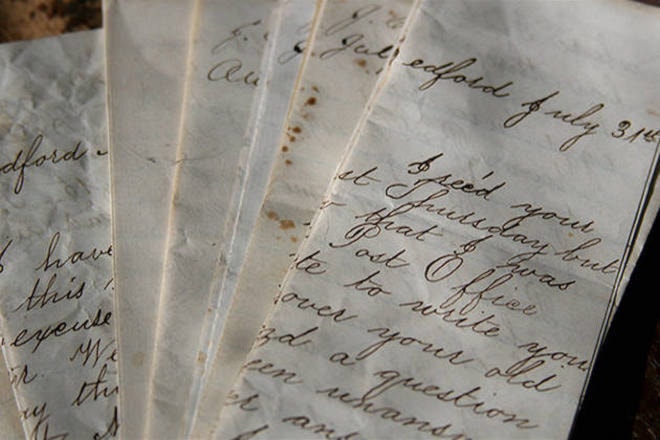 dford
I have
this
excuse
r. We
ay th
J.
Au
J.
J. Jul
edford July 31st
I rec'd your
st Thursday but
that I was
Post Office
te to write you
over your old
d a question
een unansw
er an